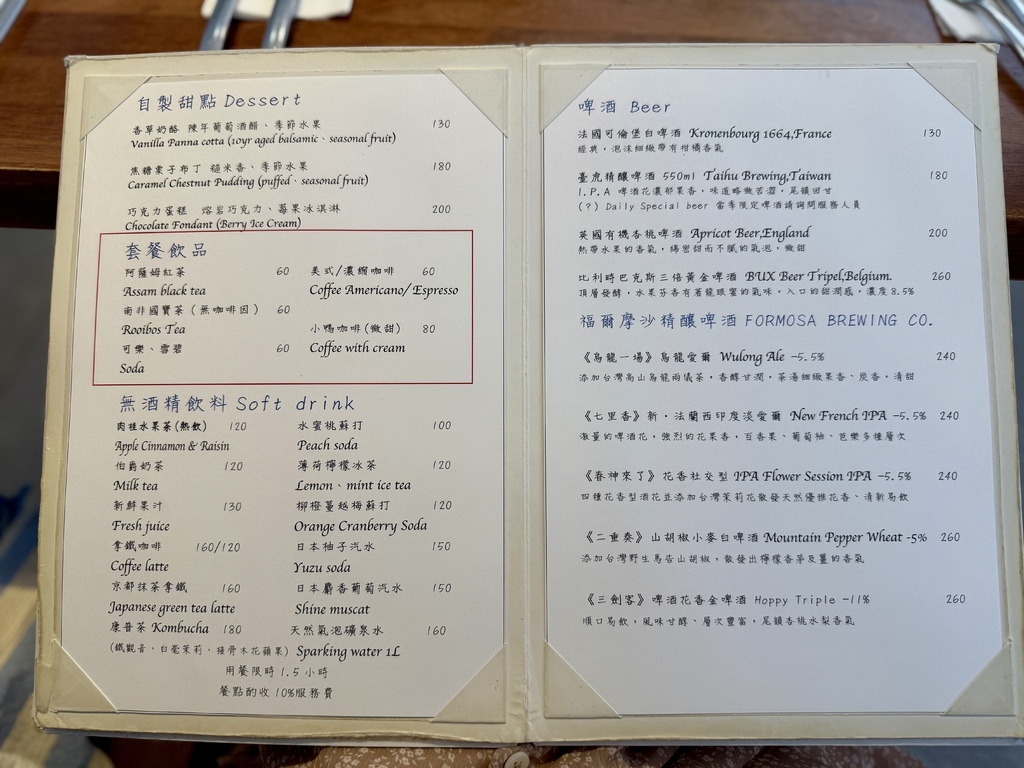 自製甜點 Dessert
香草奶酪 陳年葡萄酒醋、季節水果 130
Vanilla Panna cotta (10yr aged balsamic、seasonal fruit)
焦糖栗子布丁 糙米香、季節水果 180
Caramel Chestnut Pudding (puffed、seasonal fruit)
巧克力蛋糕 熔岩巧克力、莓果冰淇淋 200
Chocolate Fondant (Berry Ice Cream)
套餐飲品
阿薩姆紅茶 60 美式/濃縮咖啡 60
Assam black tea Coffee Americano/ Espresso
南非國寶茶 (無咖啡因) 60
Rooibos Tea 小鴨咖啡(微甜) 80
可樂、雪碧 60 Coffee with cream
Soda
無酒精飲料 Soft drink
肉桂水果茶(熱飲) 120 水蜜桃蘇打 100
Apple Cinnamon & Raisin Peach soda
伯爵奶茶 120 薄荷檸檬冰茶 120
Milk tea Lemon、mint ice tea
新鮮果汁 130 柳橙蔓越梅蘇打 120
Fresh juice Orange Cranberry Soda
拿鐵咖啡 160/120 日本柚子汽水 150
Coffee latte Yuzu soda
京都抹茶拿鐵 160 日本麝香葡萄汽水 150
Japanese green tea latte Shine muscat
康普茶 Kombucha 180 天然氣泡礦泉水 160
(鐵觀音、白毫茉莉、接骨木花蘋果) Sparking water 1L
用餐限時 1.5 小時
餐點酌收 10%服務費
啤酒 Beer
法國可倫堡白啤酒 Kronenbourg 1664,France 130
經典，泡沫細緻帶有柑橘香氣
臺虎精釀啤酒 550ml Taihu Brewing,Taiwan 180
I.P.A 啤酒花濃郁果香，味道略微苦澀，尾韻回甘
(?) Daily Special beer 當季限定啤酒請詢問服務人員
英國有機杏桃啤酒 Apricot Beer,England 200
熱帶水果的香氣，綿密甜而不膩的氣泡，微甜
比利時巴克斯三倍黃金啤酒 BUX Beer Tripel,Belgium. 260
頂層發酵，水果芬香有著龍眼蜜的氣味，入口的甜潤感，濃度8.5%
福爾摩沙精釀啤酒 FORMOSA BREWING CO.
《烏龍一場》烏龍愛爾 Wulong Ale –5.5% 240
添加台灣高山烏龍兩儀茶，香醇甘潤，茶湯細緻果香、炭香，清甜
《七里香》新‧法蘭西印度淡愛爾 New French IPA –5.5% 240
激量的啤酒花，強烈的花果香，百香果、葡萄柚、芭樂多種層次
《春神來了》花香社交型 IPA Flower Session IPA –5.5% 240
四種花香型酒花並添加台灣茉莉花散發天然優雅花香、清新易飲
《二重奏》山胡椒小麥白啤酒 Mountain Pepper Wheat -5% 260
添加台灣野生馬告山胡椒，散發出檸檬香茅及薑的香氣
《三劍客》啤酒花香金啤酒 Hoppy Triple –11% 260
順口易飲，風味甘醇、層次豐富，尾韻杏桃水梨香氣